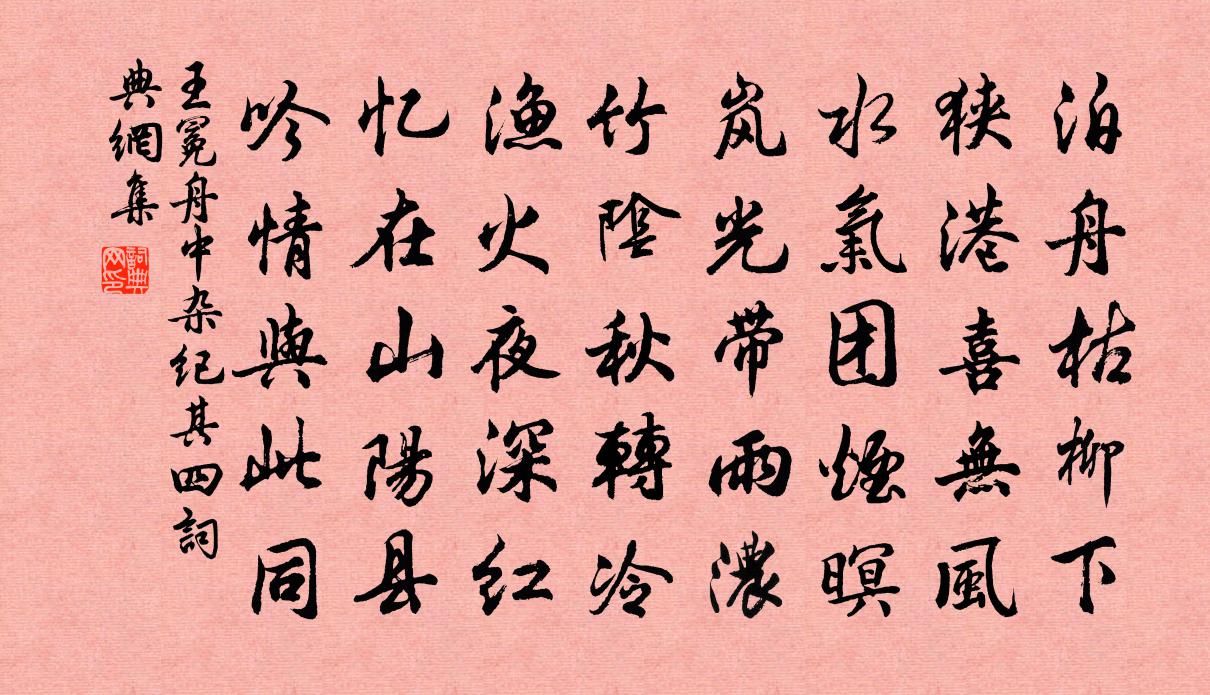 泊舟枯柳下
狭港喜無風
水氣团煙暝
岚光带雨濃
竹陰秋轉冷
漁火夜深红
忆在山陽县
吟情與此同
王冕舟中杂纪其四詞
典網集
詞典网印